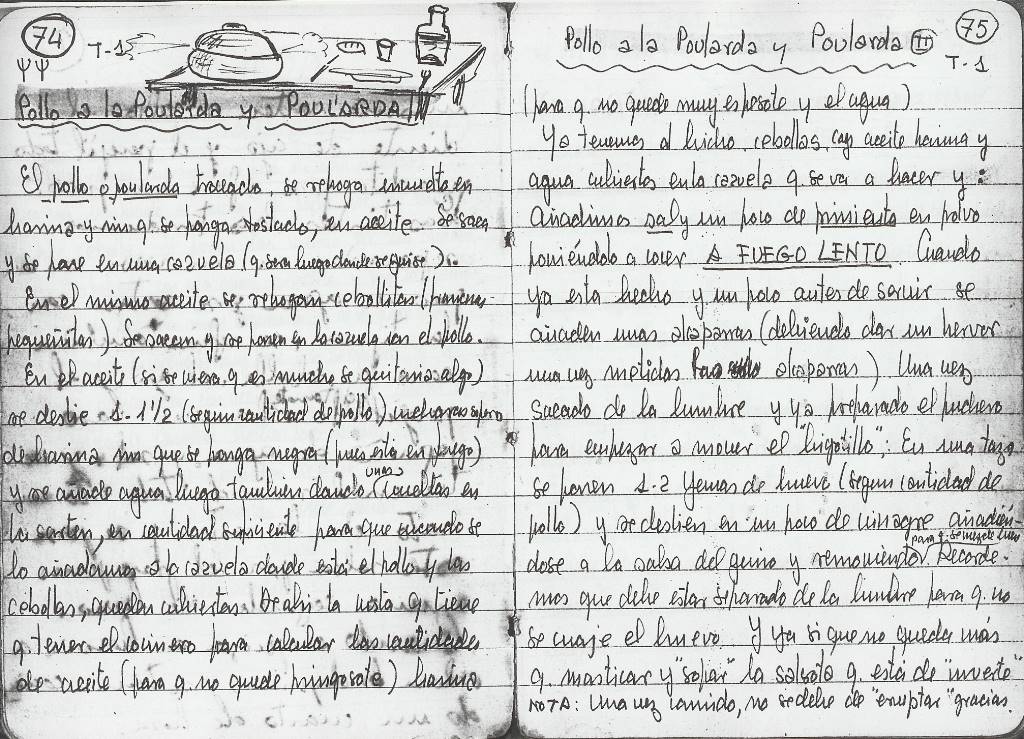 74
T-1
Pollo a la Poularda y POULARDA!!
El pollo o poularda troceado, se rehoga envuelto en
harina y sin q. se ponga tostado, en aceite. Se saca
y se pone en una cazuela (q. sera luego donde se guise).
En el mismo aceite se rehogan cebollitas (francesas
pequeñitas) Se sacan y se ponen en la cazuela con el pollo.
En el aceite (si se viera q. es mucho se quitaria algo)
se deslie 1-1½ (segun cantidad de pollo) cucharas sopera
de harina sin que se ponga negra (pues está en fuego)
y se añade agua luego tambien dando unas vueltas en
la sarten, en cantidad suficiente para que cuando se
lo añadamos a la cazuela donde está el pollo y las
cebollas, queden cubiertas. De ahi la vista q. tiene
q. tener el cocinero para calcular las cantidades
de aceite (para q. no quede pringosote) harina
75
T-1
Pollo a la Poularda y Poularda II
(para q. no quede muy espesote y el agua)
Ya tenemos al bicho, cebollas, con aceite harina y
agua cubiertos en la cazuela q. se va a hacer y:
Añadimos sal y un poco de pimienta en polvo
poniéndolo a cocer A FUEGO LENTO. Cuando
ya esta hecho y un poco antes de servir se
añaden unas alcaparras (debiendo dar un hervor
una vez metidas las alcaparras) Una vez
sacado de la lumbre y ya preparado el puchero
para empezar a mover el "bigotillo"; En una taza
se ponen 1-2 Yemas de huevo (segun cantidad de
pollo) y se deslien en un poco de vinagre añadién-
dose a la salsa del guiso y removiendo para q. se mezcle bien. Recorde-
mos que debe estar separado de la lumbre para q. no
se cuaje el huevo. Y ya si que no queda más
q. masticar y "sopar" la salsota q. está de "muerte"
NOTA: Una vez comido, no se debe de "eruptar" gracias.